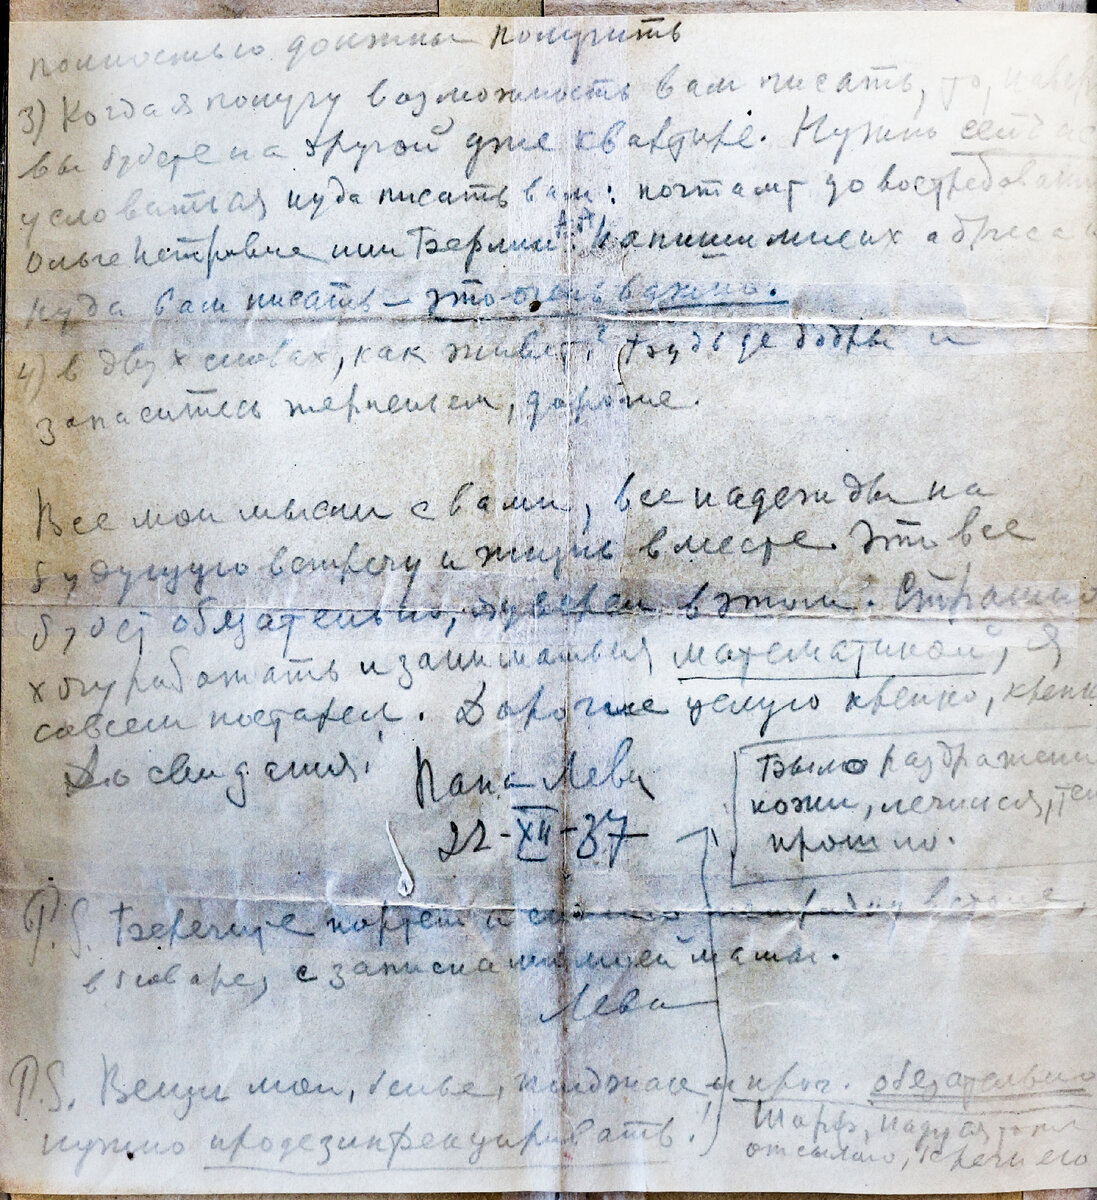 полностью должны получить
3) Когда я получу возможность вам писать, то,
вы будете на другой уже квартире. Нужно сейчас
условиться куда писать вам: почтамт до востребования
Ольге Петровне или Берлин А.А. Напиши мне их адреса и
куда вам писать – это очень важно.
4) в двух словах, как живете? Будьте бодры и
запаситесь терпеньем, дорогие.
Все мои мысли с вами, все надежды на
будущую встречу и жизнь вместе. Это все
будет обязательно, я уверен в этом. Страшно
хочу работать и заниматься математикой, я
совсем постарел. Дорогие целую крепко, крепко
До свидания! Папа Лева
22-XII-37
Было раздражение
кожи, лечился,
прошло.
P.S. Берегите портрет и
с записками моей мамы.
Лева
P.S. Вещи мои, белье, пиджак и проч. обязательно
нужно продезинфецировать!
Шарф,
отсылаю, его